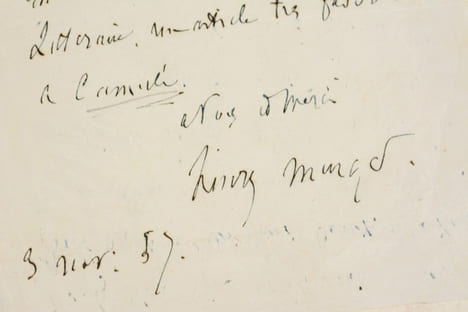 Littéraire, un article très favor
à Camille.
à vous et merci
Henry Murger.
3 nov. 57.